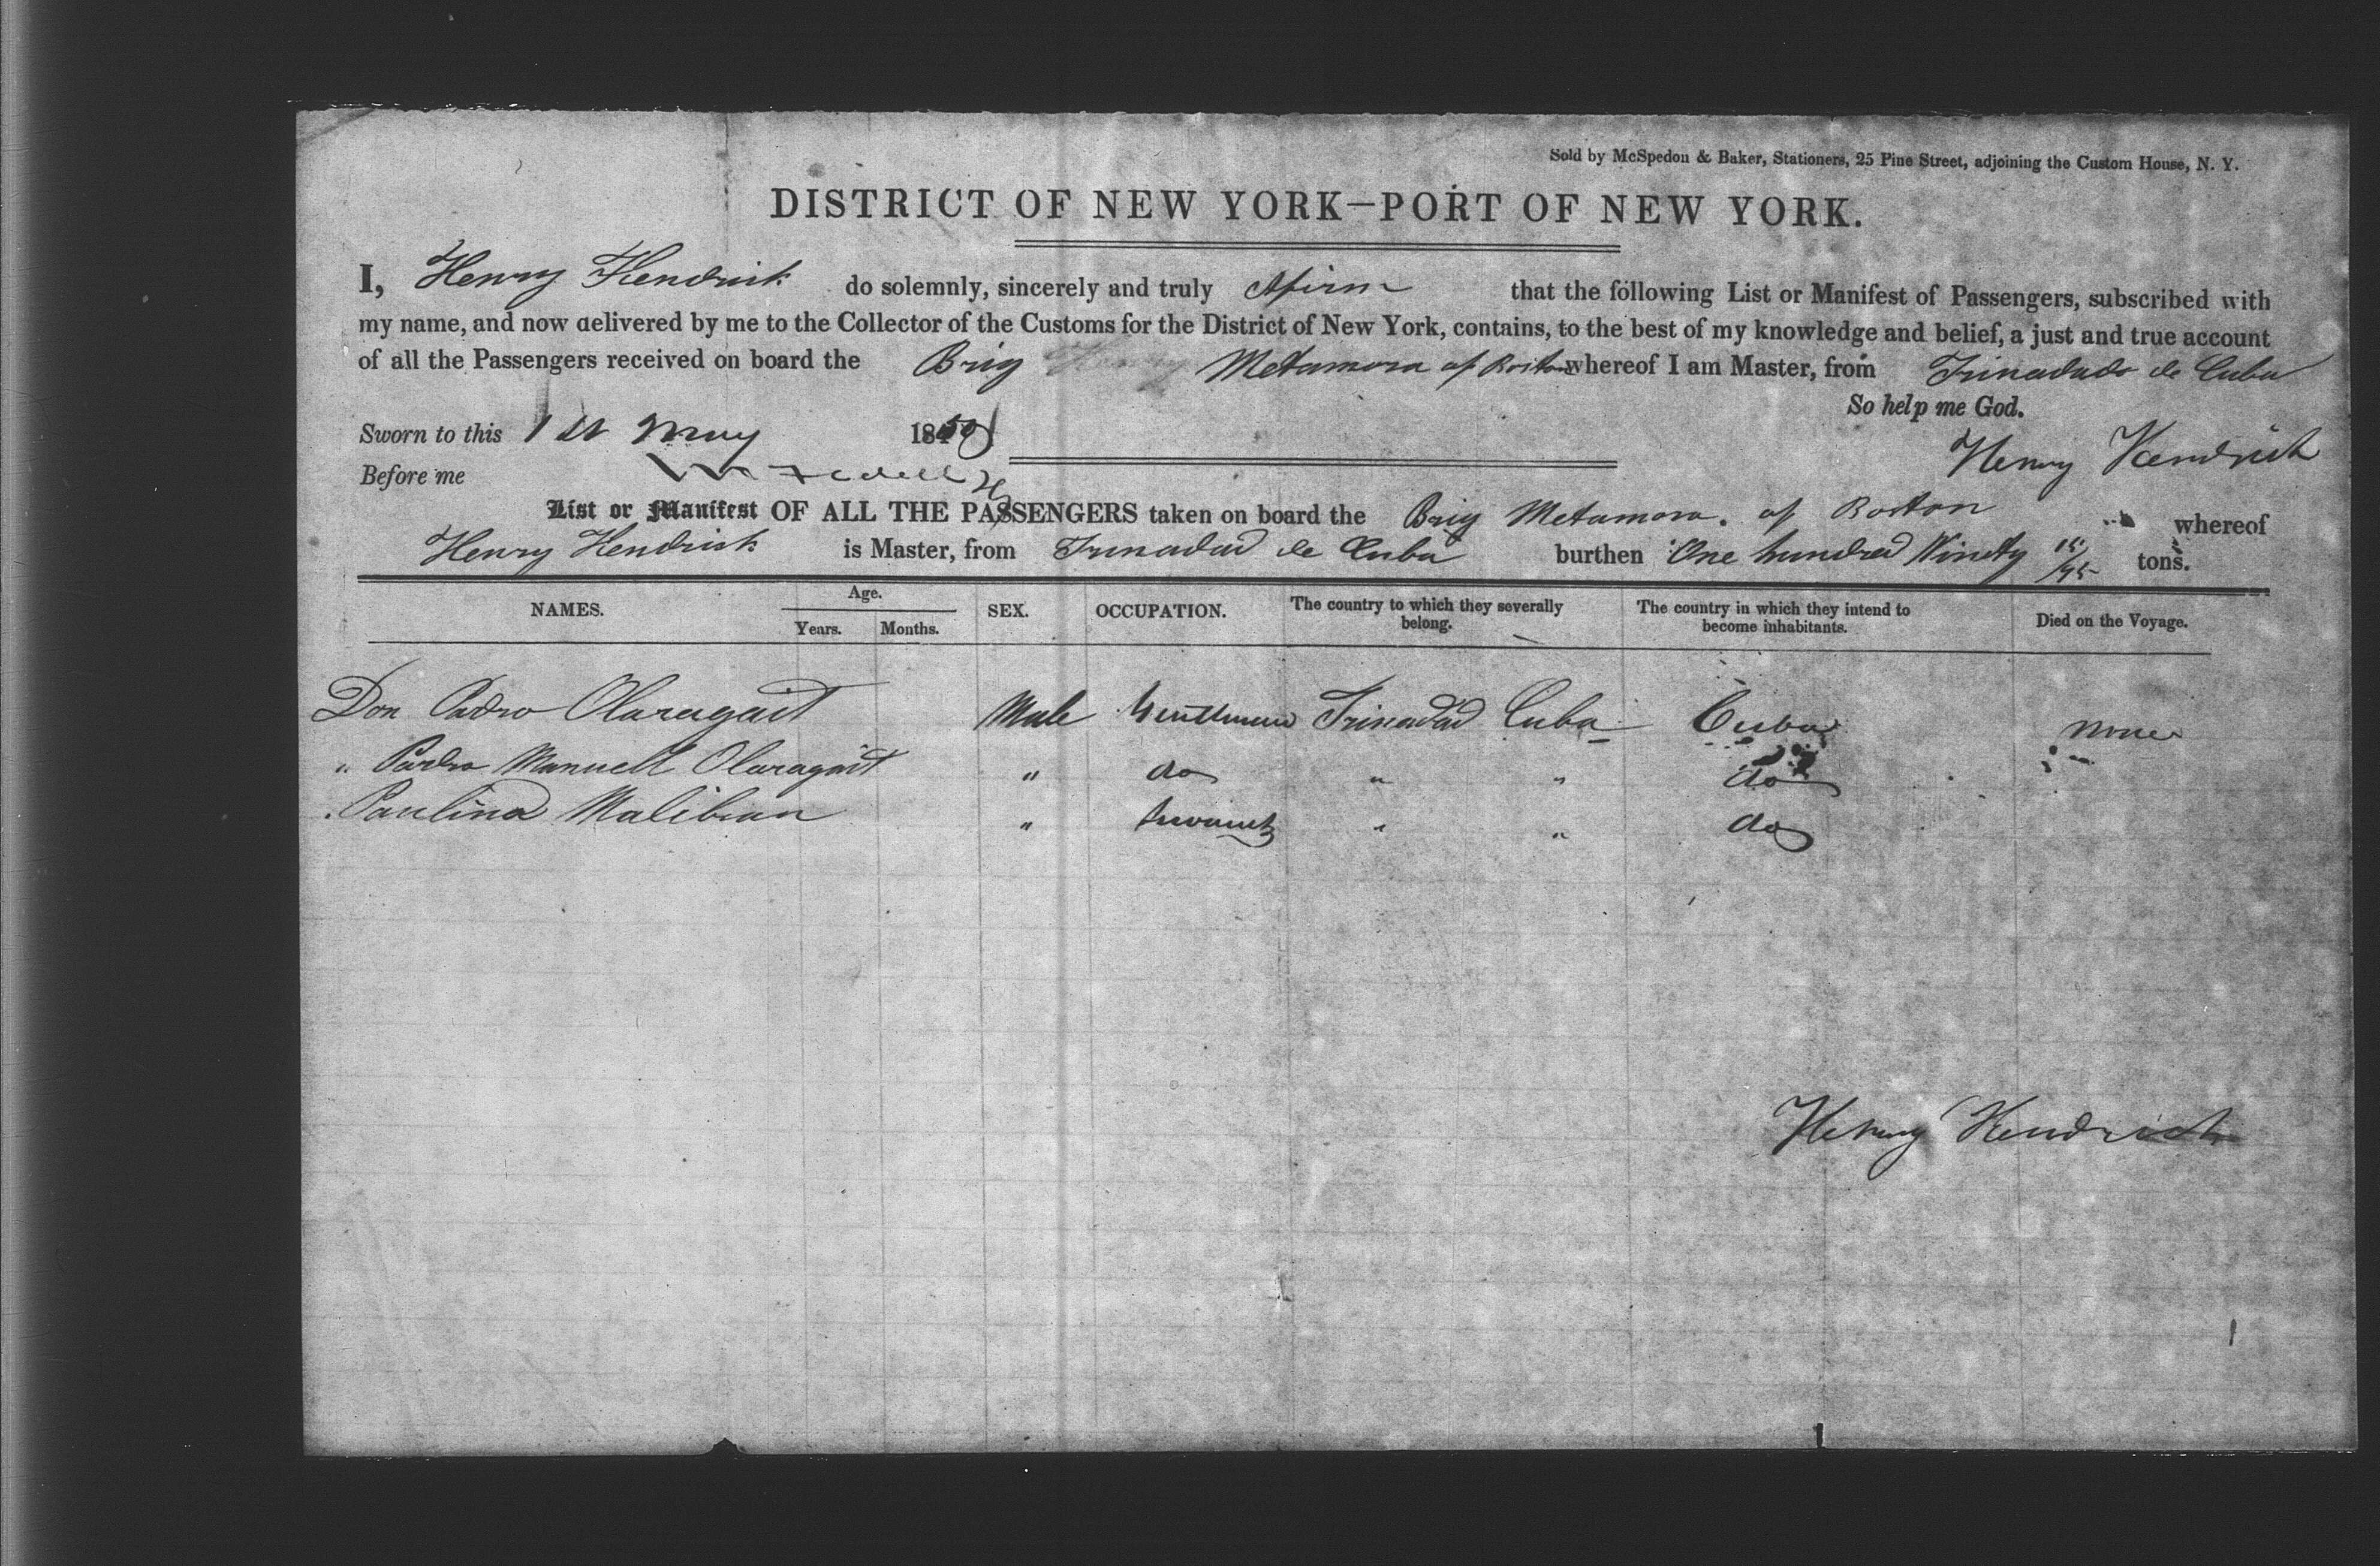 Sold by McSpedon & Baker, Stationers, 25 Pine Street, adjoining the Custom House, N. Y.
DISTRICT OF NEW YORK—PORT OF NEW YORK.
I, Henry Kendrick do solemnly, sincerely and truly Afirm that the following List or Manifest of Passengers, subscribed with
my name, and now delivered by me to the Collector of the Customs for the District of New York, contains, to the best of my knowledge and belief, a just and true account
of all the Passengers received on board the Brig Metamora of Boston whereof I am Master, from Trinadado de Cuba
So help me God.
Sworn to this 1 st May 1850
Henry Kendrick
Before me
List or Manifest OF ALL THE PASSENGERS taken on board the Brig Metamora. of Boston whereof
Henry Kendrick is Master, from Trinadad de Cuba burthen One hundred Ninety 15/95 tons.
NAMES. Age. Years. Months. SEX. OCCUPATION. The country to which they severally belong. The country in which they intend to become inhabitants. Died on the Voyage.
Don Padro Olaragait Male Gentleman Trinadad Cuba Cuba None
" Padro Manuell Olaragait " do " " do
Paulina Malibran " Servant " " do
Henry Kendrick